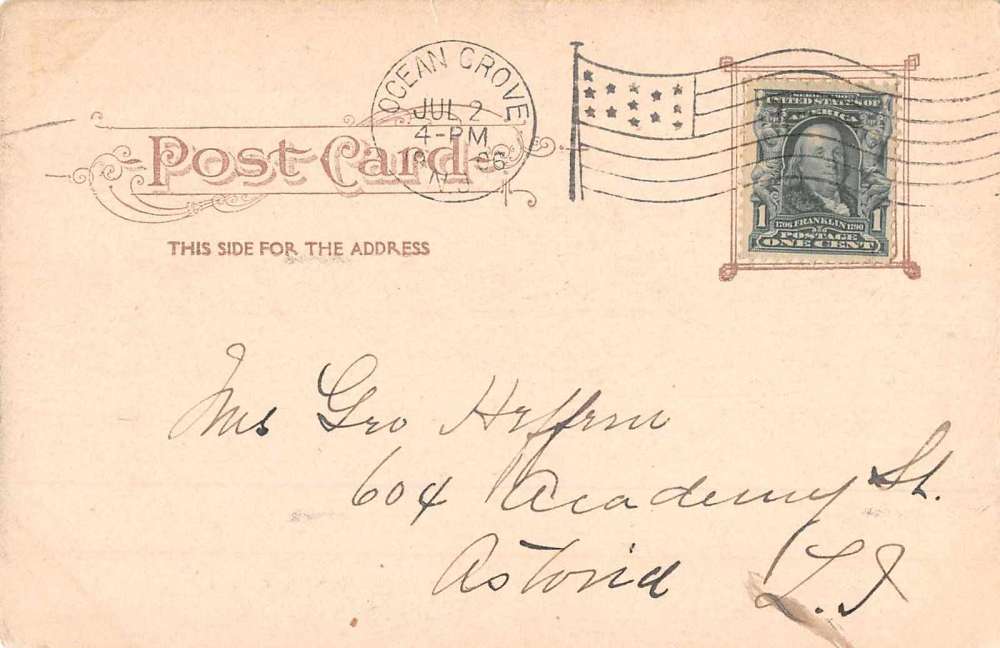 OCEAN GROVE
JUL 2
4-PM
N.J.
Post Card
THIS SIDE FOR THE ADDRESS
SERIES 1902
UNITED STATES OF
AMERICA
1 1706 FRANKLIN 1790 1
POSTAGE
ONE CENT
Mrs Geo Heffern
604 Academy St.
Astoria L. I